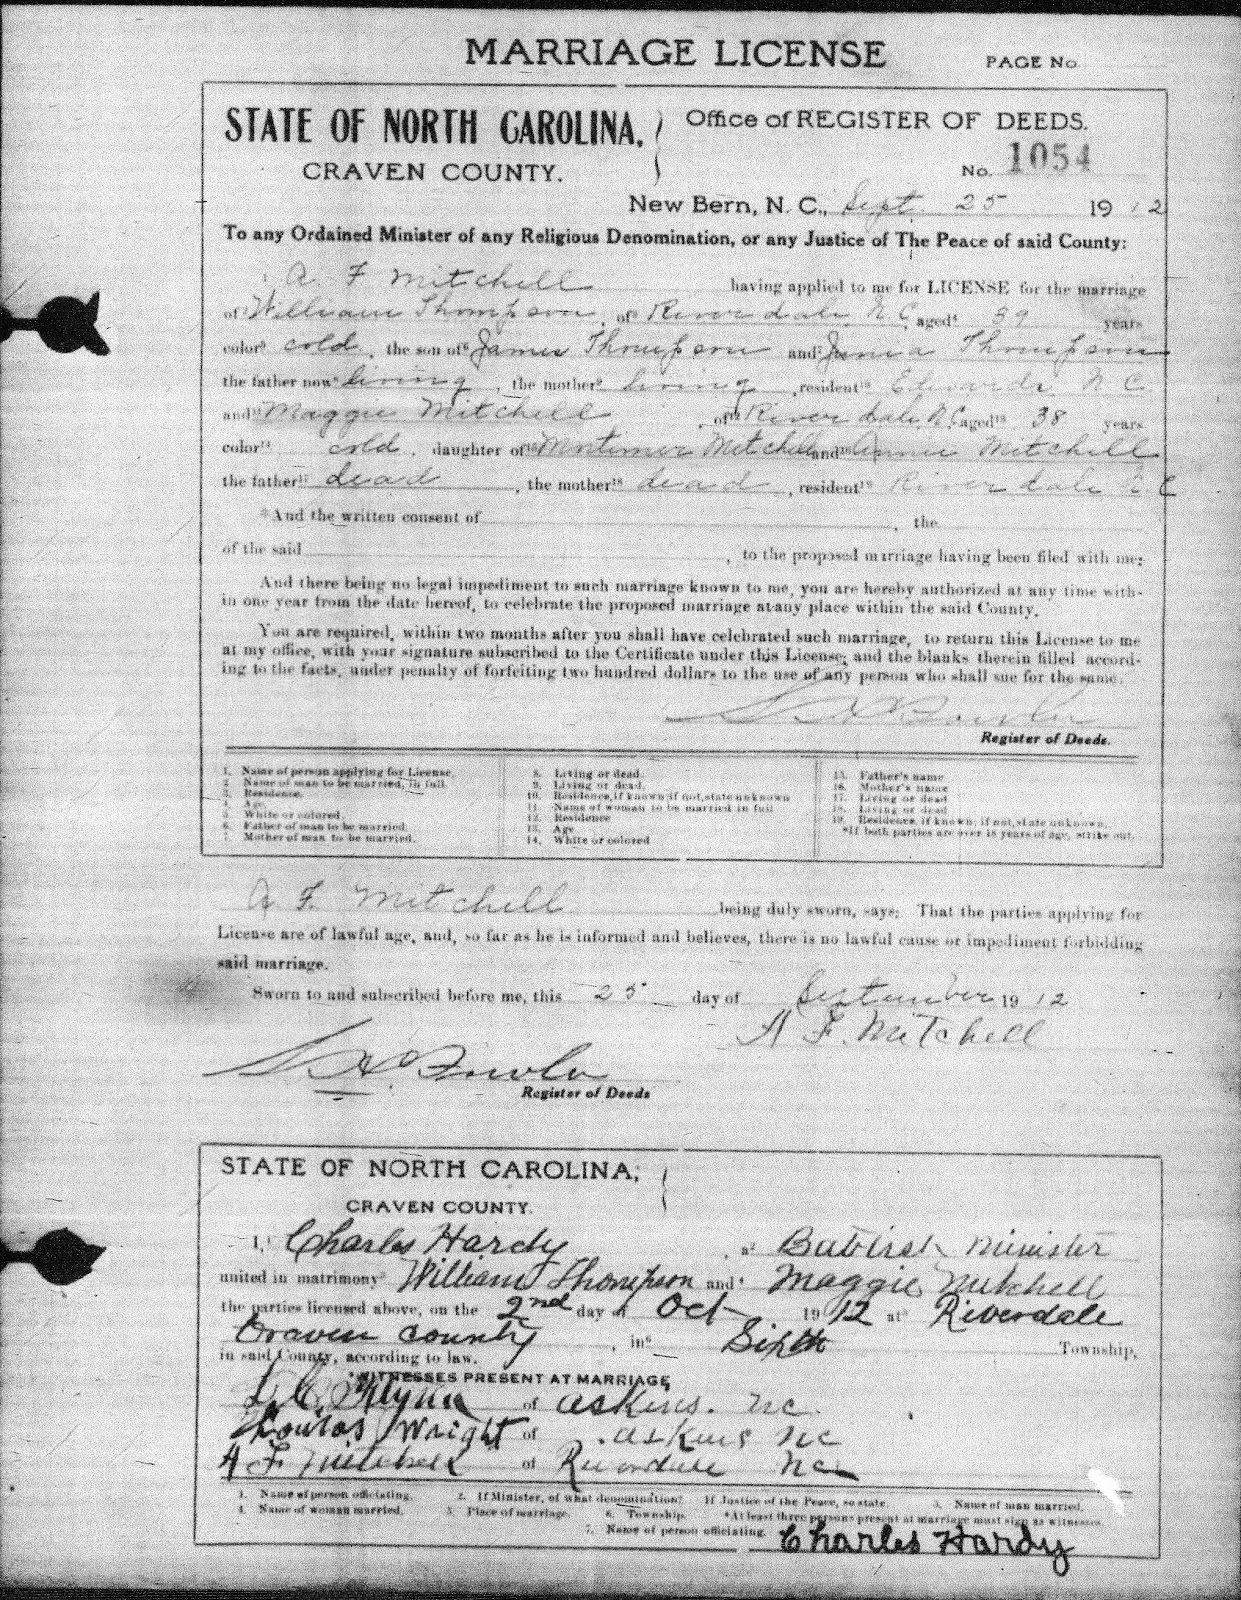 MARRIAGE LICENSE PAGE No.
STATE OF NORTH CAROLINA, Office of REGISTER OF DEEDS.
CRAVEN COUNTY. No. 1054
New Bern, N. C., Sept. 25 1912
To any Ordained Minister of any Religious Denomination, or any Justice of The Peace of said County:
A F Mitchell having applied to me for LICENSE for the marriage
of William Thompson, of Riverdale N C, aged 39 years
color cold, the son of James Thompson and Thompson
the father now living, the mother living, resident Edwards N C
and Maggie Mitchell of Riverdale, N.C. aged 38 years
color cold. daughter of Mortimer Mitchell and Annie Mitchell
the father dead, the mother dead, resident Riverdale N.C
*And the written consent of , the
of the said , to the proposed marriage having been filed with me:
And there being no legal impediment to such marriage known to me, you are hereby authorized at any time with-
in one year from the date hereof, to celebrate the proposed marriage at any place within the said County.
You are required, within two months after you shall have celebrated such marriage, to return this License to me
at my office, with your signature subscribed to the Certificate under this License, and the blanks therein filled accord-
ing to the facts, under penalty of forfeiting two hundred dollars to the use of any person who shall sue for the same.
Fowler
Register of Deeds.
1. Name of person applying for License.
2. Name of man to be married, in full.
3. Residence.
4. Age.
5. White or colored.
6. Father of man to be married.
7. Mother of man to be married.
8. Living or dead.
9. Living or dead.
10. Residence, if known; if not, state unknown
11. Name of woman to be married in full
12. Residence
13. Age
14. White or colored
15. Father's name
16. Mother's name
17. Living or dead
18. Living or dead
19. Residence, if known; if not, state unknown.
*If both parties are over 18 years of age, strike out.
A F. Mitchell being duly sworn, says: That the parties applying for
License are of lawful age, and, so far as he is informed and believes, there is no lawful cause or impediment forbidding
said marriage.
Sworn to and subscribed before me, this 25 day of September 1912
A F. Mitchell
Fowler
Register of Deeds
STATE OF NORTH CAROLINA,
CRAVEN COUNTY.
I, Charles Hardy, a Babtist minister
united in matrimony William Thompson and Maggie Mitchell
the parties licensed above, on the 2nd day of Oct 1912 at Riverdale
Craven County, in Sixth Township,
in said County, according to law.
*WITNESSES PRESENT AT MARRIAGE
of askins. nc.
Wright of askins nc
A F Mitchell of Riverdale nc
1. Name of person officiating. 2. If Minister, of what denomination? If Justice of the Peace, so state. 3. Name of man married.
4. Name of woman married. 5. Place of marriage. 6. Township. *At least three persons present at marriage must sign as witnesses.
7. Name of person officiating. Charles Hardy